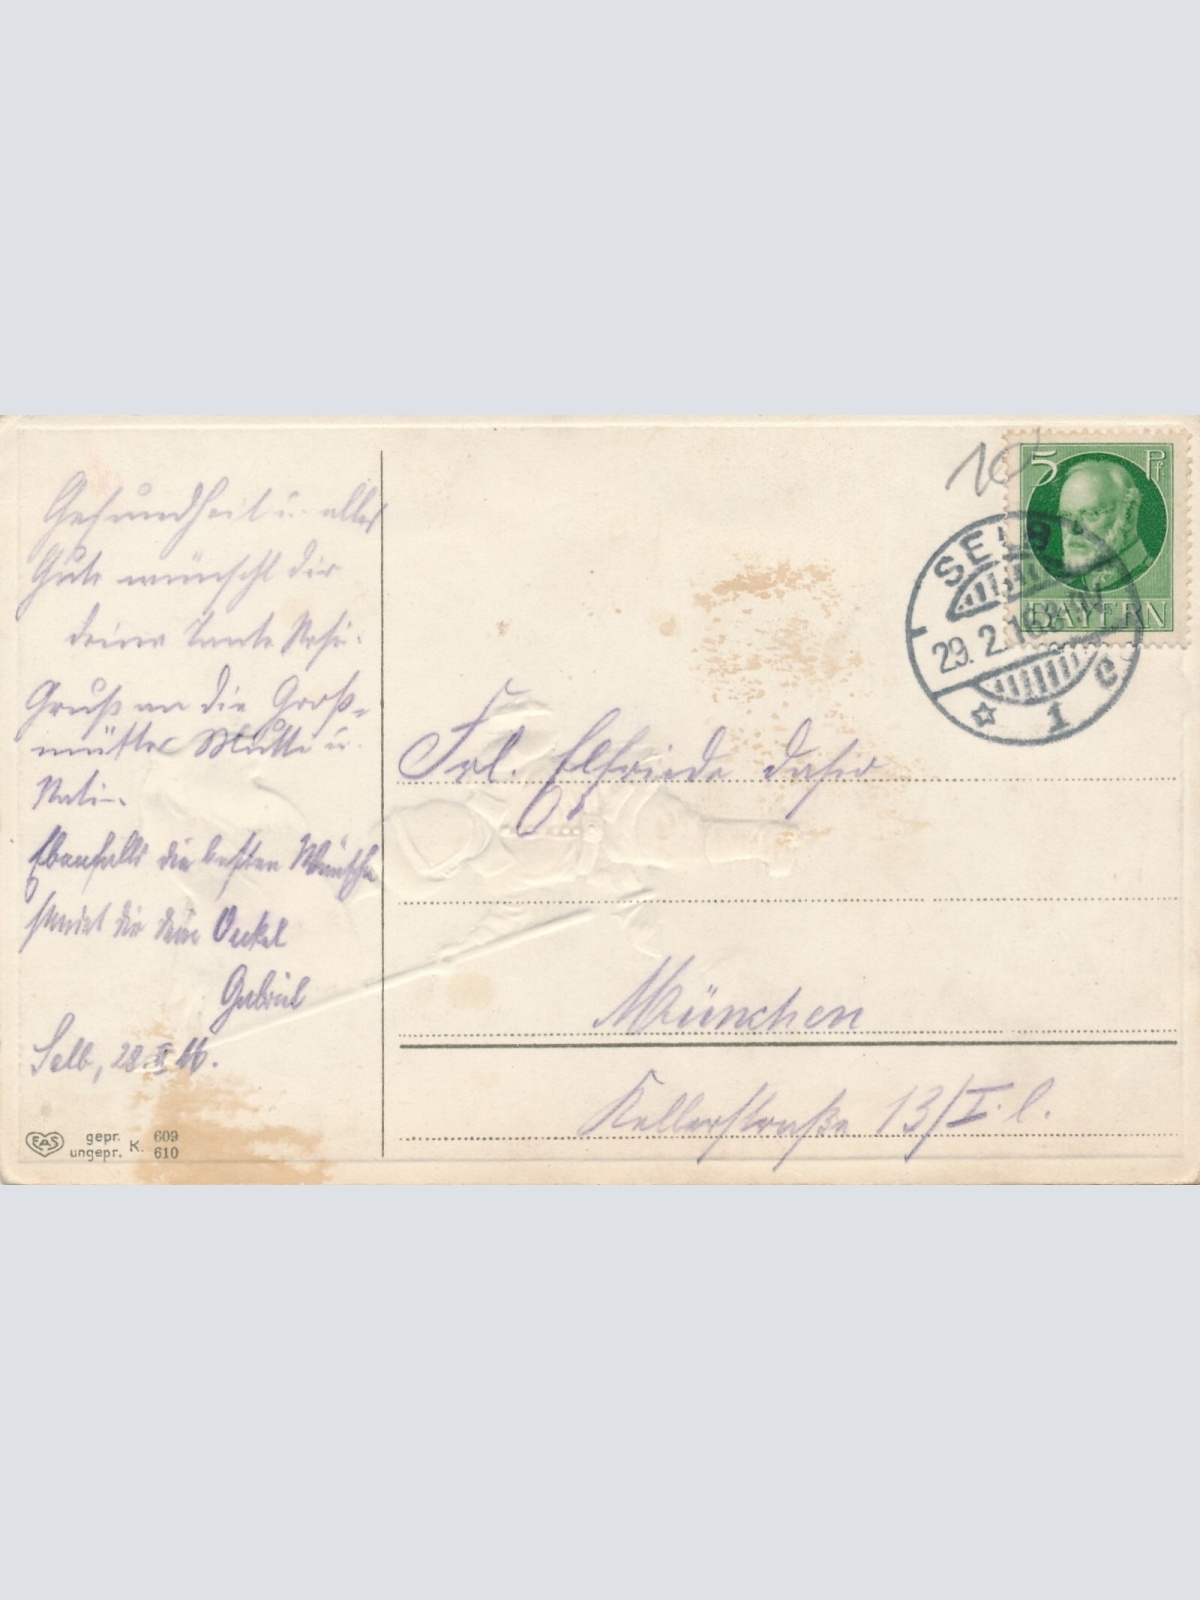 Gesundheit u. alles
Gute wünscht dir
deine Tante Resi.
Gruß an die Groß-
mutter Mutter u.
Ebenfalls die besten Wünsche
sendet dir dein Onkel
Gabriel
Selb, 28 II 16.
EAS
gepr.
ungepr. K. 609
610
10
5 Pf.
BAYERN
SELB
29. 2. 16
1 c
Frl. Elfriede
München
Kellerstraße 13/I. l.